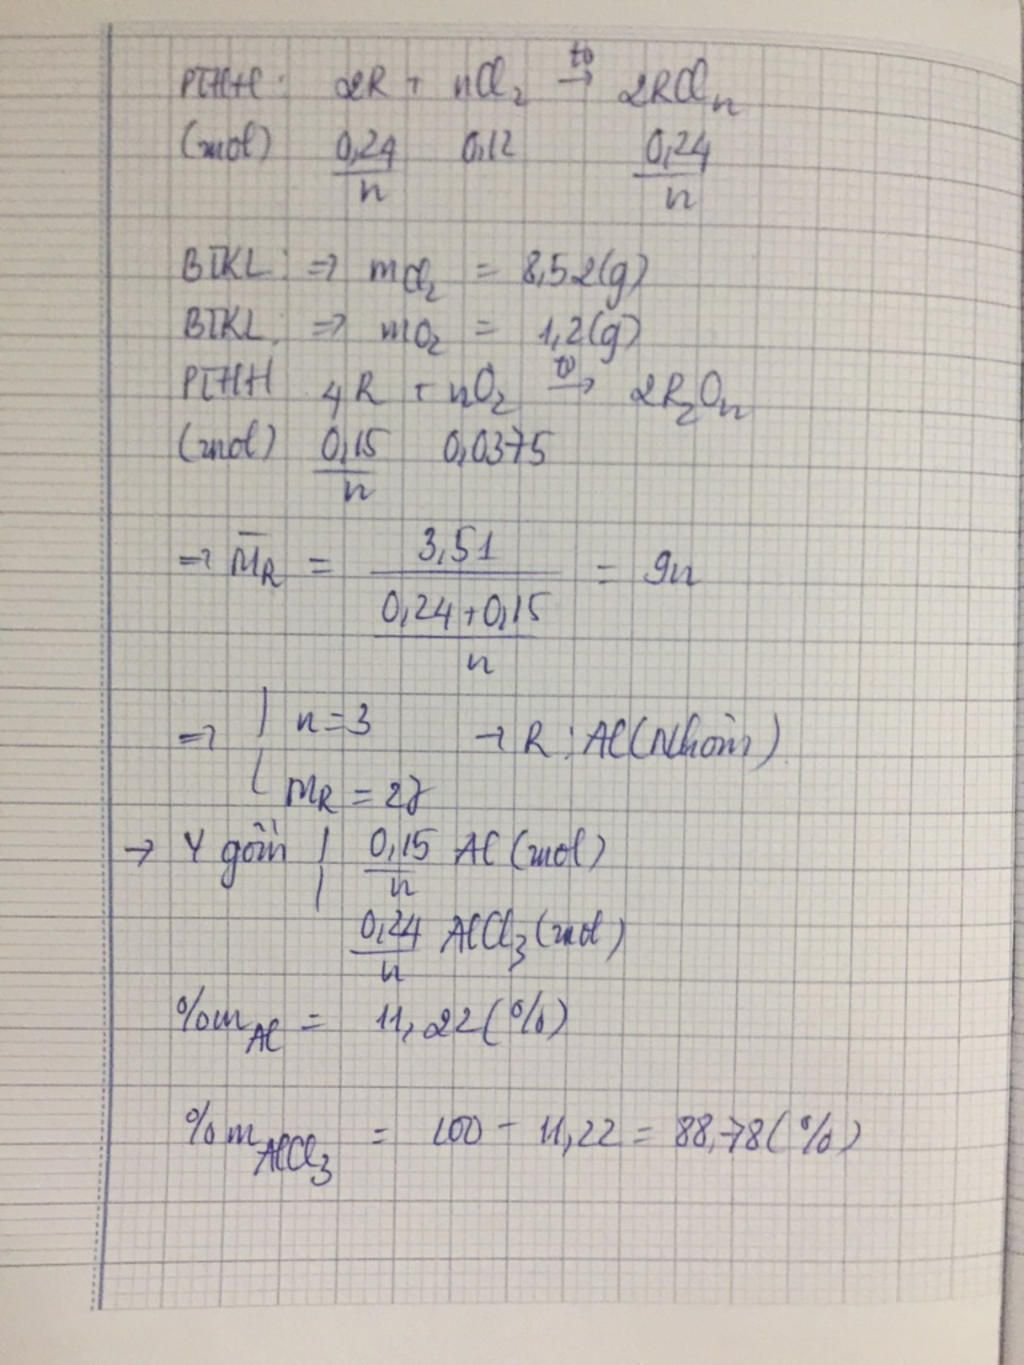 PTHH: 2R + nCl₂ →(t⁰) 2RClₙ
(mol) 0,24/n 0,12 0,24/n
BTKL: => mCl₂ = 8,52(g)
BTKL: => mO₂ = 1,2(g)
PTHH 4R + nO₂ →(t⁰) 2R₂Oₙ
(mol) 0,15/n 0,0375
=> M̄_R = 3,51/((0,24+0,15)/n) = 9n
=> { n=3
M_R = 27 → R : Al(Nhôm)
→ Y gồm { 0,15/n Al (mol)
0,24/n AlCl₃ (mol)
%m_Al = 11,22(%)
%m_AlCl₃ = 100 - 11,22 = 88,78(%)